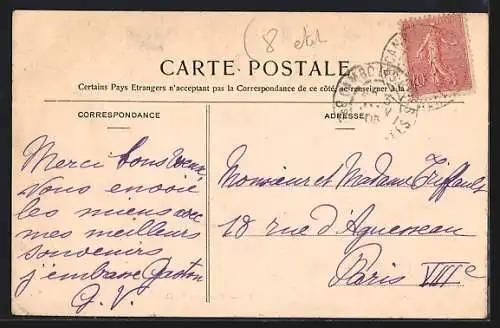 (8 etal
CARTE POSTALE
Certains Pays Etrangers n'acceptant pas la Correspondance de ce côté, se renseigner à la
CORRESPONDANCE
ADRESSE
Merci bons voeux
Vous envoie
les miens avec
mes meilleurs
souvenirs
j'embrasse Gaston
G. V.
Monsieur et Madame Triffault
18 rue d'Aguesseau
Paris VIIIe